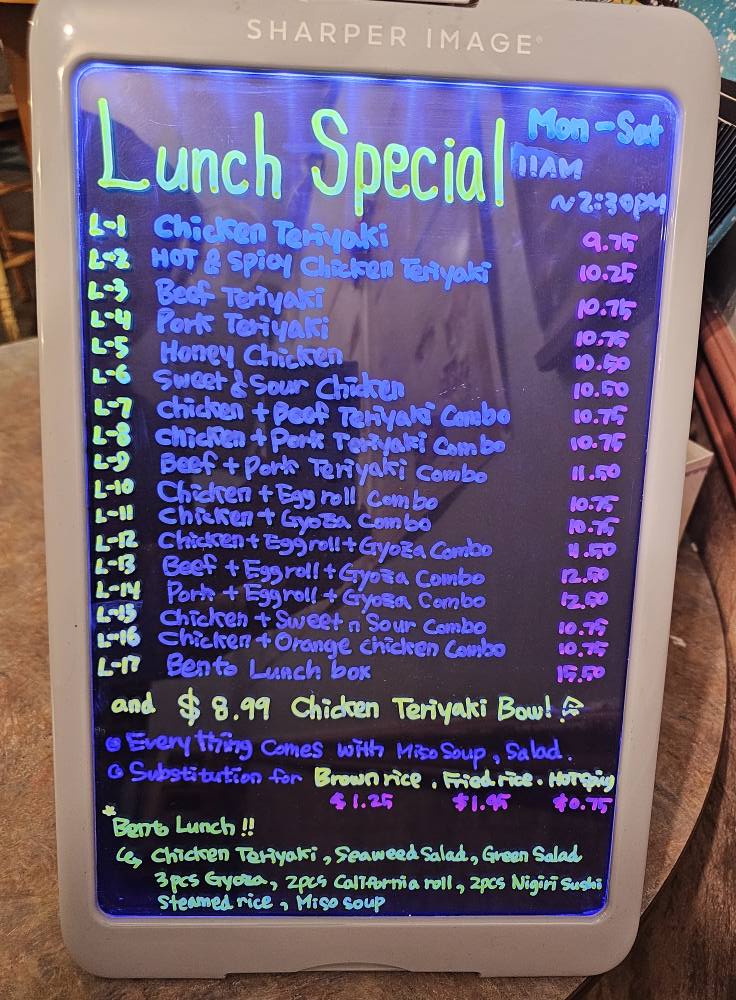 SHARPER IMAGE®
Lunch Special Mon-Sat
11AM
~2:30PM
L-1 Chicken Teriyaki 9.75
L-2 HOT & Spicy Chicken Teriyaki 10.25
L-3 Beef Teriyaki 10.75
L-4 Pork Teriyaki 10.75
L-5 Honey Chicken 10.50
L-6 Sweet & Sour Chicken 10.50
L-7 Chicken + Beef Teriyaki Combo 10.75
L-8 Chicken + Pork Teriyaki Combo 10.75
L-9 Beef + Pork Teriyaki Combo 11.50
L-10 Chicken + Egg roll Combo 10.75
L-11 Chicken + Gyoza Combo 10.75
L-12 Chicken + Eggroll + Gyoza Combo 11.50
L-13 Beef + Eggroll + Gyoza Combo 12.50
L-14 Pork + Eggroll + Gyoza Combo 12.50
L-15 Chicken + Sweet n Sour Combo 10.75
L-16 Chicken + Orange chicken Combo 10.75
L-17 Bento Lunch box 15.50
and $8.99 Chicken Teriyaki Bowl!
Everything comes with Miso Soup, Salad.
Substitution for Brown rice . Fried rice . Hot spicy
$1.25 $1.95 $0.75
*Bento Lunch!!
Chicken Teriyaki, Seaweed Salad, Green Salad
3pcs Gyoza, 2pcs California roll, 2pcs Nigiri Sushi
Steamed rice, Miso soup